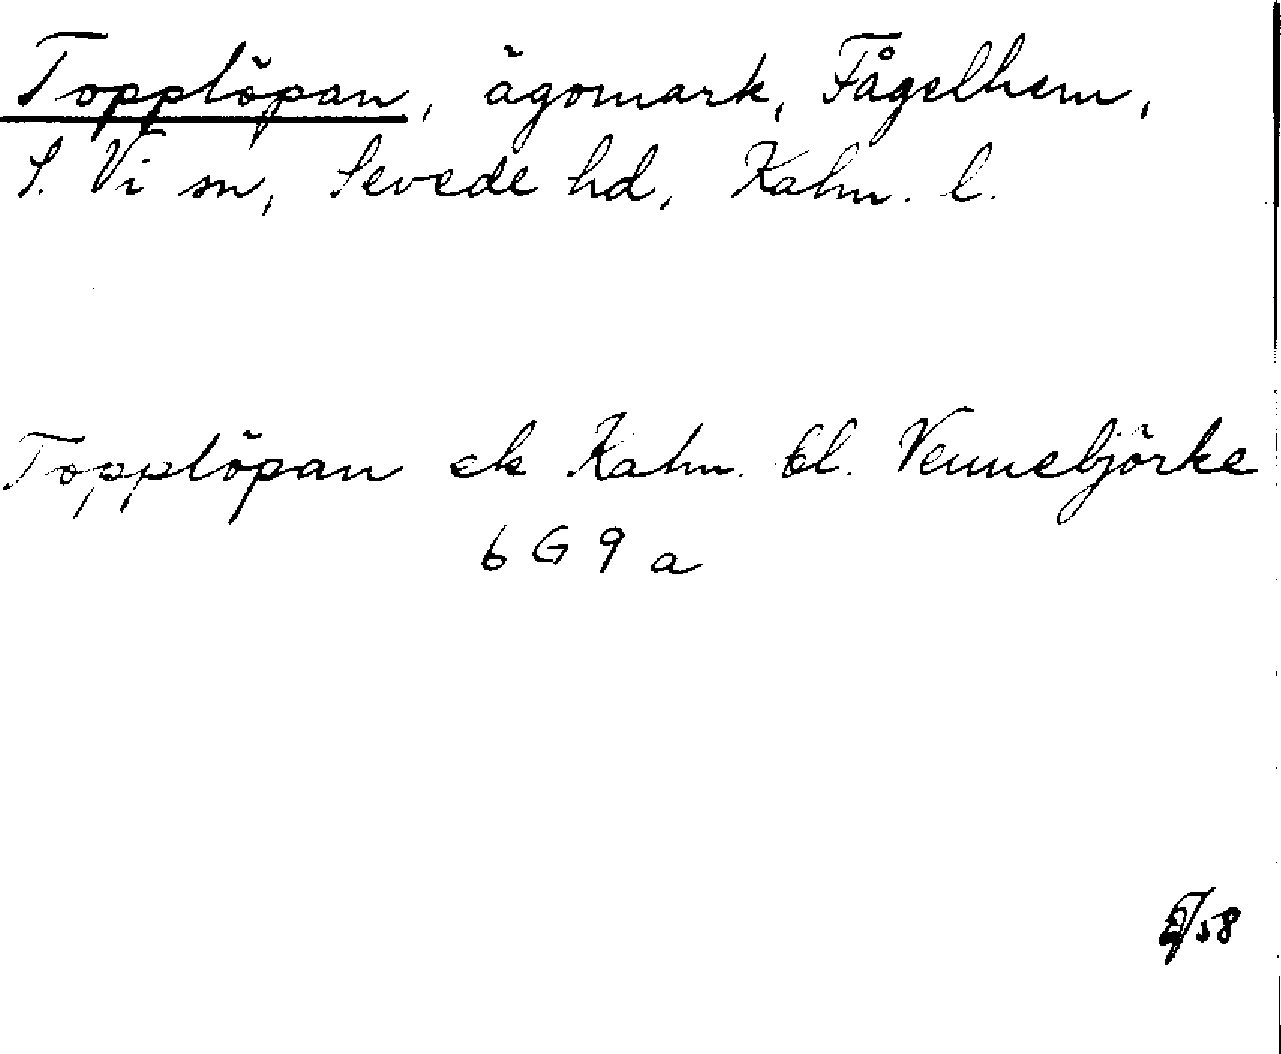 Topplöpan, ägomark, Fågelhem,
S. Vi sn, Sevede hd, Kalm. l.
Topplöpan ek Kalm. bl. Vennebjörke
6 G 9 a